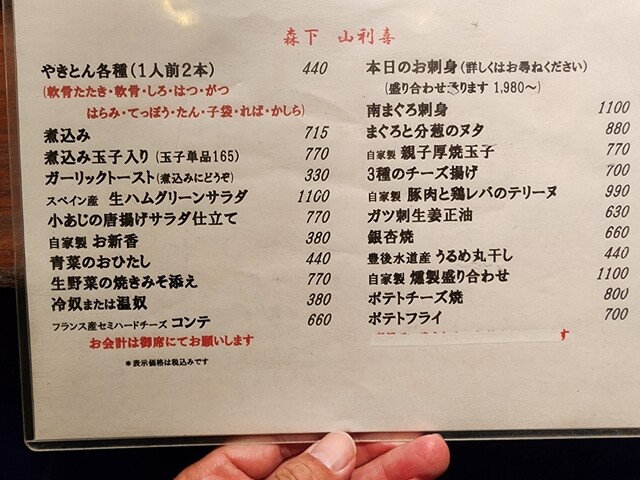 森下 山利喜
やきとん各種(1人前2本) 440
(軟骨たたき・軟骨・しろ・はつ・がつ
はらみ・てっぽう・たん・子袋・れば・かしら)
煮込み 715
煮込み玉子入り(玉子単品165) 770
ガーリックトースト(煮込みにどうぞ) 330
スペイン産 生ハムグリーンサラダ 1100
小あじの唐揚げサラダ仕立て 770
自家製 お新香 380
青菜のおひたし 440
生野菜の焼きみそ添え 770
冷奴または温奴 380
フランス産セミハードチーズ コンテ 660
お会計は御席にてお願いします
*表示価格は税込みです
本日のお刺身(詳しくはお尋ねください)
(盛り合わせ承ります 1,980~)
南まぐろ刺身 1100
まぐろと分葱のヌタ 880
自家製 親子厚焼玉子 770
3種のチーズ揚げ 700
自家製 豚肉と鶏レバのテリーヌ 990
ガツ刺生姜正油 630
銀杏焼 660
豊後水道産 うるめ丸干し 440
自家製 燻製盛り合わせ 1100
ポテトチーズ焼 800
ポテトフライ 700
す